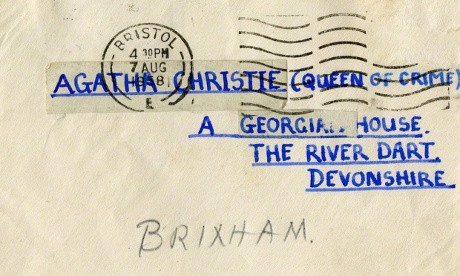 BRISTOL
4 30PM
7 AUG
E
AGATHA CHRISTIE (QUEEN OF CRIME)
A GEORGIAN HOUSE.
THE RIVER DART.
DEVONSHIRE.
BRIXHAM.